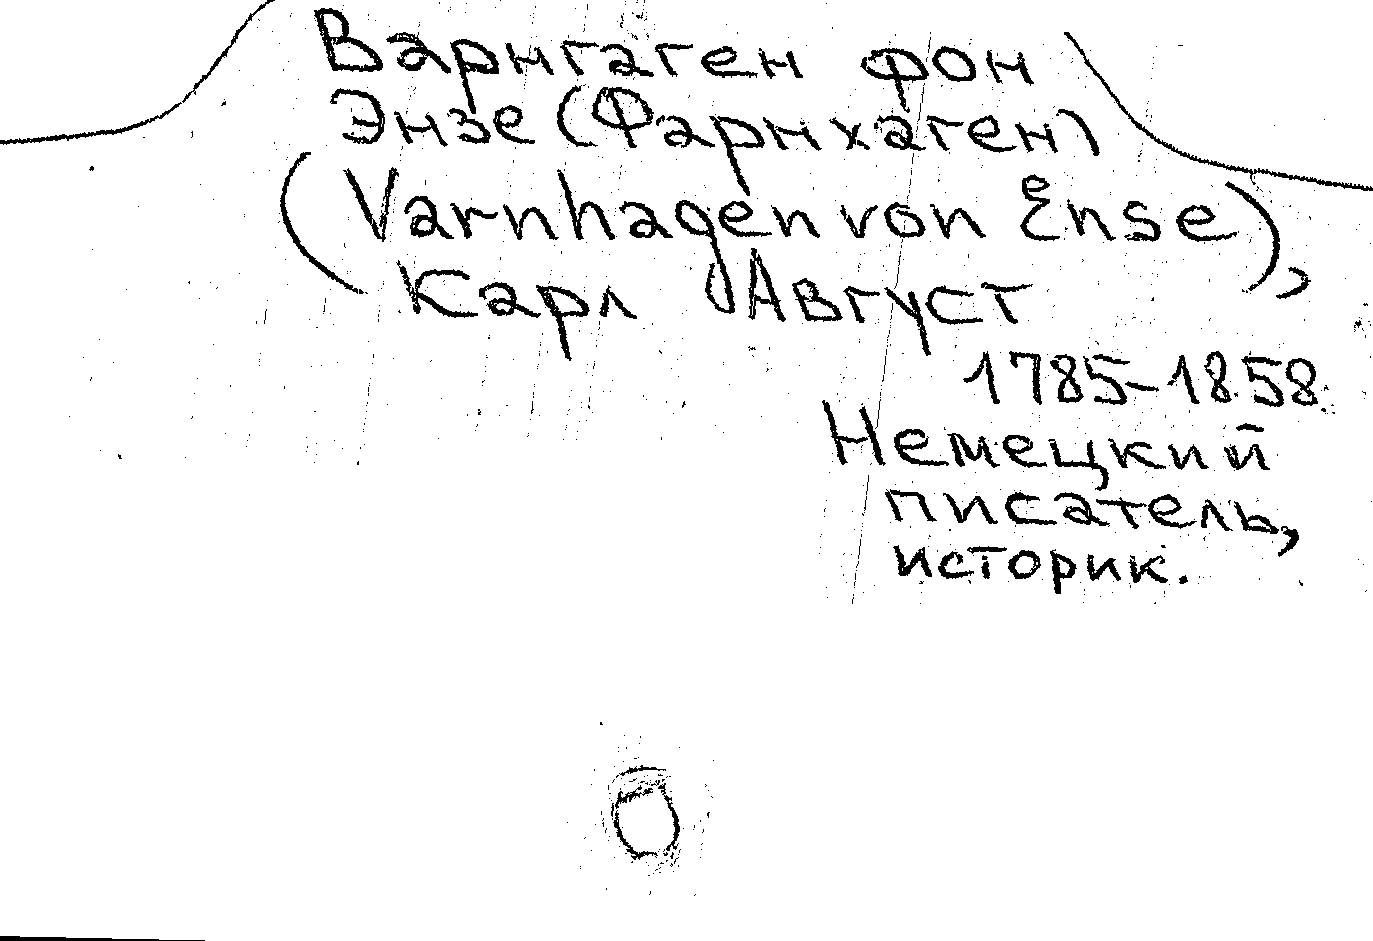 Варнгаген фон
Энзе (Фарнхаген)
(Varnhagen von Ense),
Карл Август
1785-1858
Немецкий
писатель,
историк.